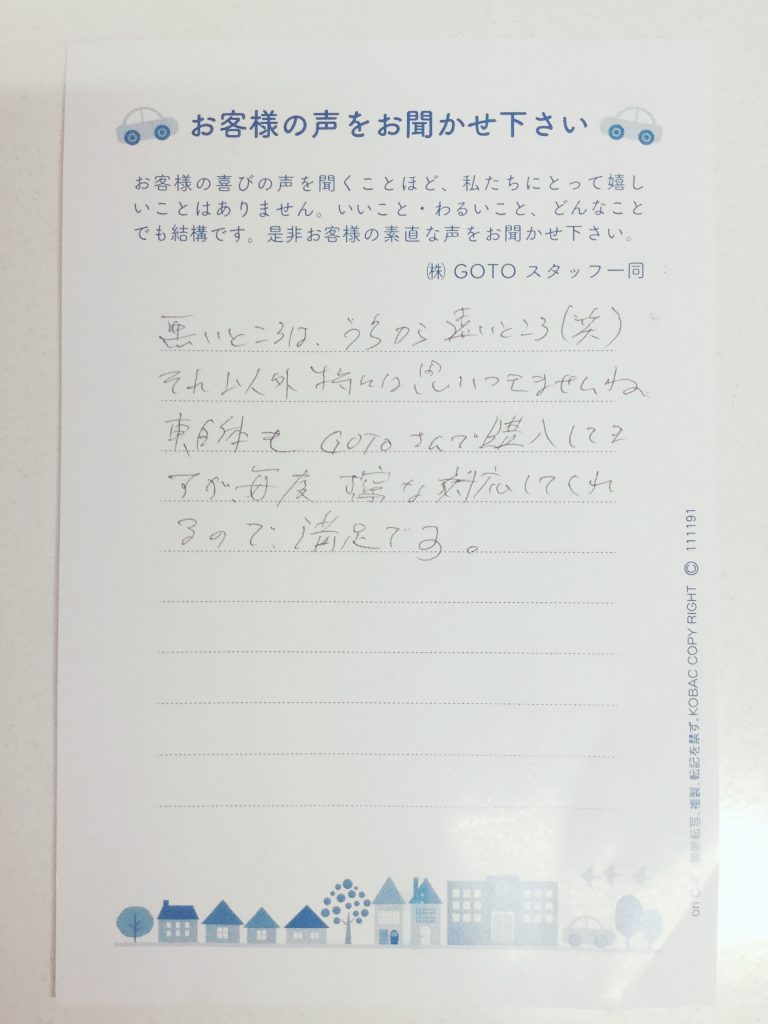 お客様の声をお聞かせ下さい
お客様の喜びの声を聞くことほど、私たちにとって嬉し
いことはありません。いいこと・わるいこと、どんなこと
でも結構です。是非お客様の素直な声をお聞かせ下さい。
㈱ GOTO スタッフ一同
悪いところは、うちから遠いところ(笑)
それ以外特には思いつきませんね。
車自体も GOTOさんで購入してま
すが、毎度 丁寧な対応してくれ
るので、満足です。
無断転写、複製、転記を禁ず。KOBAC COPY RIGHT © 111191